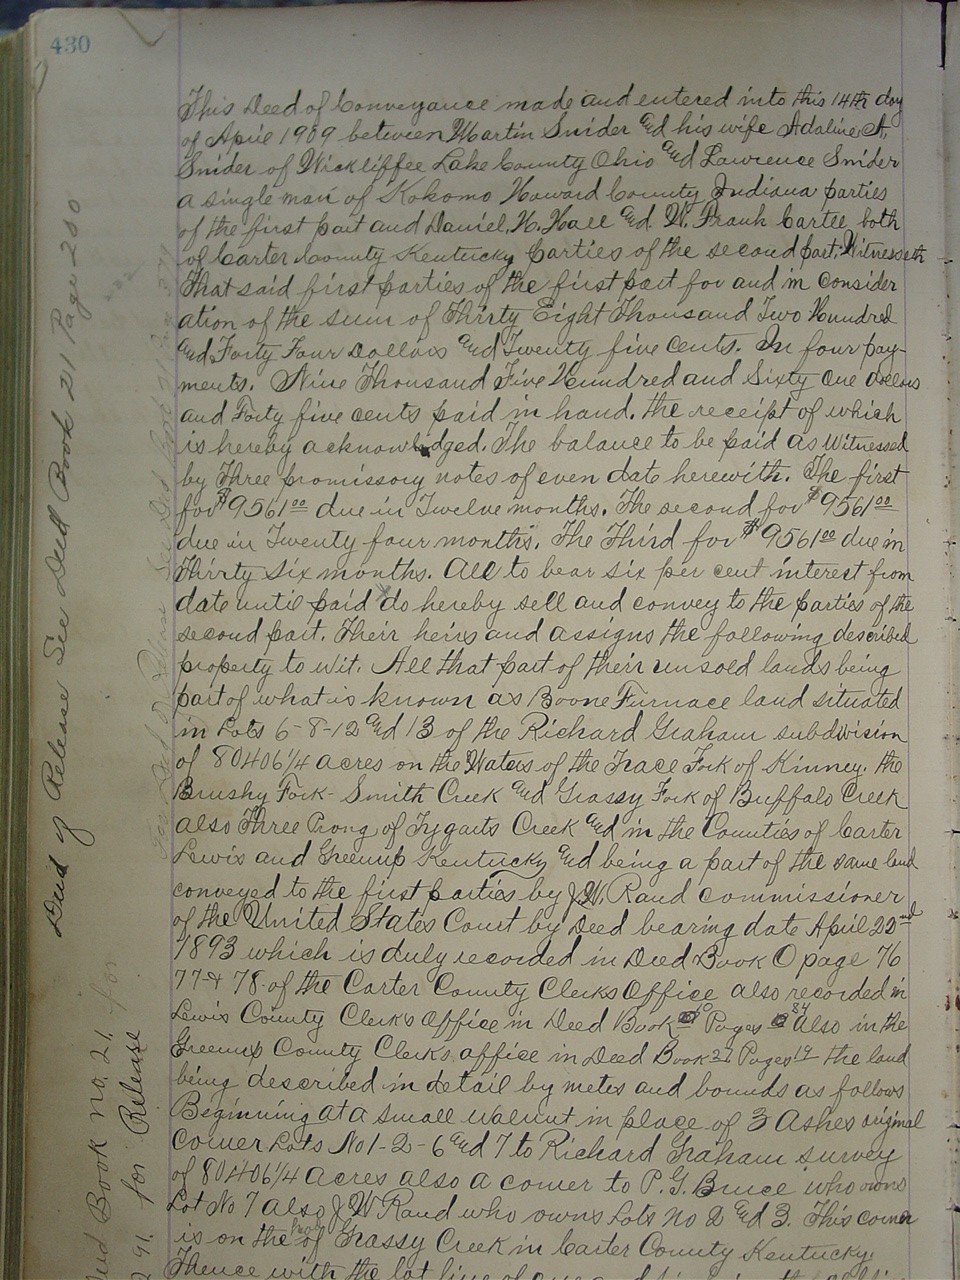 430
This Deed of Conveyance made and entered into this 14th day
of April 1909 between Martin Snider and his wife Adaline A.
Snider of Wickliffee Lake County Ohio and Lawrence Snider
a single man of Kokomo Howard County Indiana parties
of the first part and Daniel. H. Hall and W. Frank Cartee both
of Carter County Kentucky parties of the second part. Witnesseth
That said first parties of the first part for and in consider
ation of the sum of Thirty Eight Thousand Two Hundred
and Forty Four Dollars and Twenty five cents. In four pay-
ments. Nine Thousand Five Hundred and Sixty One dollars
and Forty five cents paid in hand. the receipt of which
is hereby acknowledged. The balance to be paid as Witnessed
by Three promissory notes of even date herewith. The first
for $9561 00 due in Twelve months. The second for $9561 00
due in Twenty four months. The Third for $9561 00 due in
Thirty Six months. All to bear six per cent interest from
date until paid do hereby sell and convey to the parties of the
second part. Their heirs and assigns the following described
property to wit. All that part of their unsold lands being
part of what is known as Boone Furnace land situated
in Lots 6-8-12 and 13 of the Richard Graham subdivision
of 80406 1/4 acres on the Waters of the Trace Fork of Kinney. the
Brushy Fork- Smith Creek and Grassy Fork of Buffalo Creek
also Three Prong of Tygarts Creek and in the Counties of Carter
Lewis and Greenup Kentucky and being a part of the same land
conveyed to the first parties by J.W. Rand commissioner
of the United States Court by Deed bearing date April 22nd
1893 which is duly recorded in Deed Book O page 76
77 & 78 of the Carter County Clerks Office also recorded in
Lewis County Clerks Office in Deed Book Pages 84 also in the
Greenup County Clerks office in Deed Book 27 Pages 19 the land
being described in detail by metes and bounds as follows
Beginning at a small walnut in place of 3 Ashes original
corner Lots No 1-2-6 and 7 to Richard Graham survey
of 80406 1/4 acres also a corner to P. G. Bruce who owns
Lot No 7 also J W Rand who owns Lots No 2 and 3. This corner
is on the of Grassy Creek in Carter County Kentucky.
Thence with the lot line of
Deed of Release See Deed Book 21 Page 280
Book no. 21. for
291. for Release